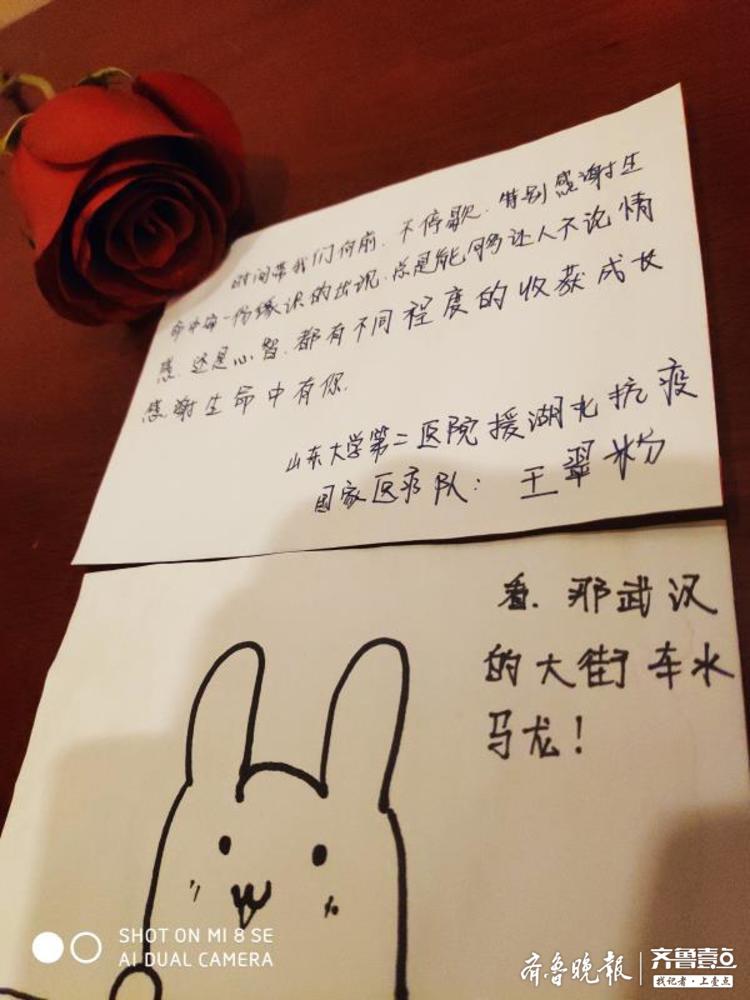 时间带我们向前、不停歇、特别感谢生
命中每一份缘识的出现、总是能够让人不论情
感、还是心智、都有不同程度的收获成长
感谢生命中有你.
山东大学第二医院援湖北抗疫
国家医疗队：王翠粉
看、那武汉
的大街车水
马龙！
SHOT ON MI 8 SE
AI DUAL CAMERA
齐鲁晚报
齐鲁壹点
找记者·上壹点